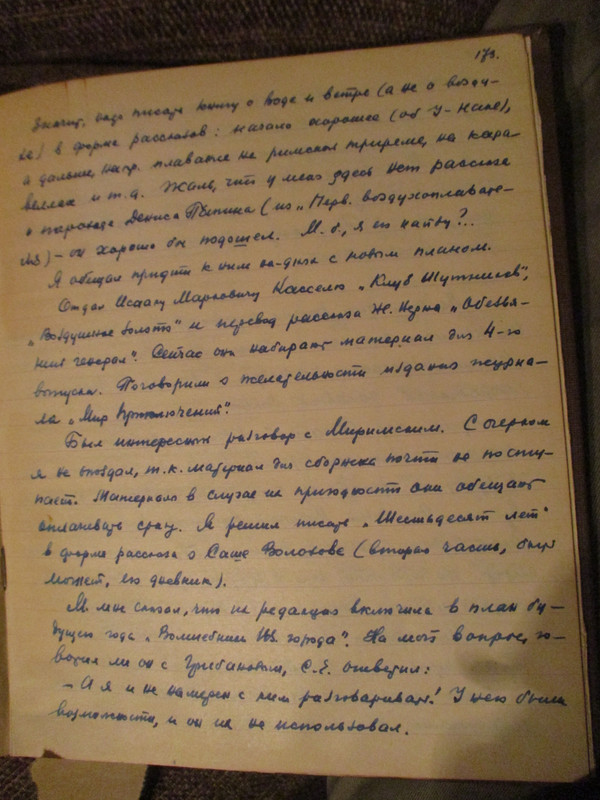 173.
Значит, надо писать книгу о воде и ветре (а не о возду-
хе) в форме рассказов: начало хорошее (об У-Нане),
а дальше, напр. плавание на римской триреме, на кара-
веллах и т.д. Жаль, что у меня здесь нет рассказа
о пароходе Дениса Папина (из „Перв. воздухоплавате-
ля) – он хорошо бы подошел. М.б., я его найду?...
Я обещал придти к ним на-днях с новым планом.
Отдал Исааку Марковичу Касселю „Клуб Шутников",
„Воздушное золото" и перевод рассказа Ж. Верна „Обезья-
ний генерал". Сейчас они набирают материал для 4-го
выпуска. Поговорили о желательности издания журна-
ла „Мир Приключений".
Был интересный разговор с Миримским. С очерком
я не опоздал, т.к. материал для сборника почти не посту-
пает. Материалы в случае их пригодности они обещают
оплачивать сразу. Я решил писать „Шестьдесят лет"
в форме рассказа о Саше Волокове (вторая часть, быть
может, его дневник).
М. мне сказал, что их редакция включила в план бу-
дущего года „Волшебника Из. города". На мой вопрос, го-
ворил ли он с Грибановым, С.Е. ответил:
– А я и не намерен с ним разговаривать! У него были
возможности, и он их не использовал.